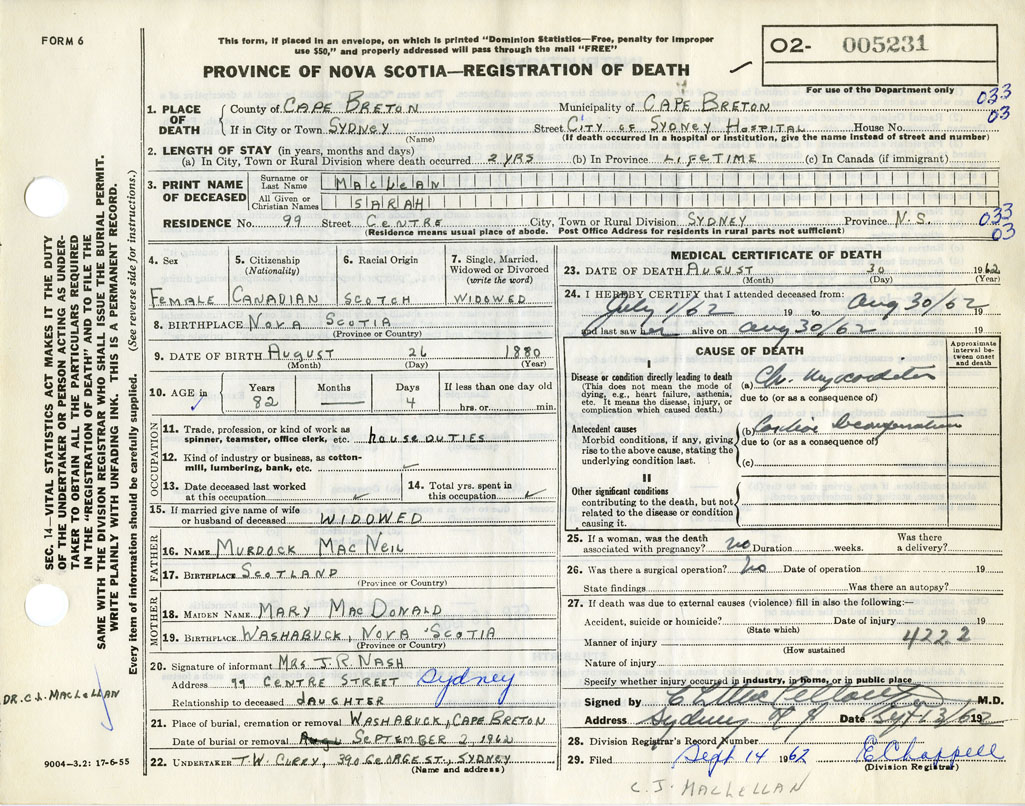 FORM 6
This form, if placed in an envelope, on which is printed "Dominion Statistics—Free, penalty for improper
use $50," and properly addressed will pass through the mail "FREE"
PROVINCE OF NOVA SCOTIA—REGISTRATION OF DEATH
O2- 005231
For use of the Department only
033
03
1. PLACE OF DEATH
County of CAPE BRETON Municipality of CAPE BRETON
If in City or Town SYDNEY Street CITY OF SYDNEY HOSPITAL House No.
(Name) (If death occurred in a hospital or institution, give the name instead of street and number)
2. LENGTH OF STAY (in years, months and days)
(a) In City, Town or Rural Division where death occurred 2 YRS (b) In Province LIFETIME (c) In Canada (if immigrant)
3. PRINT NAME OF DECEASED
Surname or Last Name MACLEAN
All Given or Christian Names SARAH
RESIDENCE No. 99 Street CENTRE City, Town or Rural Division SYDNEY Province N.S.
(Residence means usual place of abode. Post Office Address for residents in rural parts not sufficient)
033
03
4. Sex
FEMALE
5. Citizenship (Nationality)
CANADIAN
6. Racial Origin
SCOTCH
7. Single, Married, Widowed or Divorced (write the word)
WIDOWED
8. BIRTHPLACE NOVA SCOTIA
(Province or Country)
9. DATE OF BIRTH AUGUST 26 1880
(Month) (Day) (Year)
10. AGE in
Years 82
Months —
Days 4
If less than one day old
hrs. or min.
OCCUPATION
11. Trade, profession, or kind of work as
spinner, teamster, office clerk, etc. HOUSE DUTIES
12. Kind of industry or business, as cotton-
mill, lumbering, bank, etc.
13. Date deceased last worked
at this occupation
14. Total yrs. spent in
this occupation
15. If married give name of wife
or husband of deceased WIDOWED
FATHER
16. NAME MURDOCK MACNEIL
17. BIRTHPLACE SCOTLAND
(Province or Country)
MOTHER
18. MAIDEN NAME MARY MACDONALD
19. BIRTHPLACE WASHABUCK, NOVA SCOTIA
(Province or Country)
20. Signature of informant MRS J.R. NASH
Address 99 CENTRE STREET Sydney
Relationship to deceased DAUGHTER
21. Place of burial, cremation or removal WASHABUCK, CAPE BRETON
Date of burial or removal SEPTEMBER 2 1962
22. UNDERTAKER T.W. CURRY, 390 GEORGE ST., SYDNEY
(Name and address)
MEDICAL CERTIFICATE OF DEATH
23. DATE OF DEATH AUGUST 30 1962
(Month) (Day) (Year)
24. I HEREBY CERTIFY that I attended deceased from:
July 1/62 19 to Aug 30/62
and last saw her alive on Aug 30/62 19
CAUSE OF DEATH
Approximate interval between onset and death
I
Disease or condition directly leading to death
(This does not mean the mode of
dying, e.g., heart failure, asthenia,
etc. It means the disease, injury, or
complication which caused death.)
(a) Ch. Myocarditis
due to (or as a consequence of)
Antecedent causes
Morbid conditions, if any, giving
rise to the above cause, stating the
underlying condition last.
(b)
due to (or as a consequence of)
(c)
II
Other significant conditions
contributing to the death, but not
related to the disease or condition
causing it.
25. If a woman, was the death
associated with pregnancy? no Duration weeks. Was there
a delivery?
26. Was there a surgical operation? No Date of operation 19
State findings Was there an autopsy?
27. If death was due to external causes (violence) fill in also the following:—
Accident, suicide or homicide? Date of injury 19
(State which)
Manner of injury 4222
(How sustained
Nature of injury
Specify whether injury occurred in industry, in home, or in public place
Signed by M.D.
Address Sydney Date Sept 2/62 19
28. Division Registrar's Record Number
29. Filed Sept 14 1962 E Chappell
(Division Registrar)
C.J. MACLELLAN
SEC. 14—VITAL STATISTICS ACT MAKES IT THE DUTY
OF THE UNDERTAKER OR PERSON ACTING AS UNDER-
TAKER TO OBTAIN ALL THE PARTICULARS REQUIRED
IN THE "REGISTRATION OF DEATH" AND TO FILE THE
SAME WITH THE DIVISION REGISTRAR WHO SHALL ISSUE THE BURIAL PERMIT.
WRITE PLAINLY WITH UNFADING INK. THIS IS A PERMANENT RECORD.
Every item of information should be carefully supplied. (See reverse side for instructions.)
DR. C.J. MACLELLAN
9004—3.2: 17-6-55